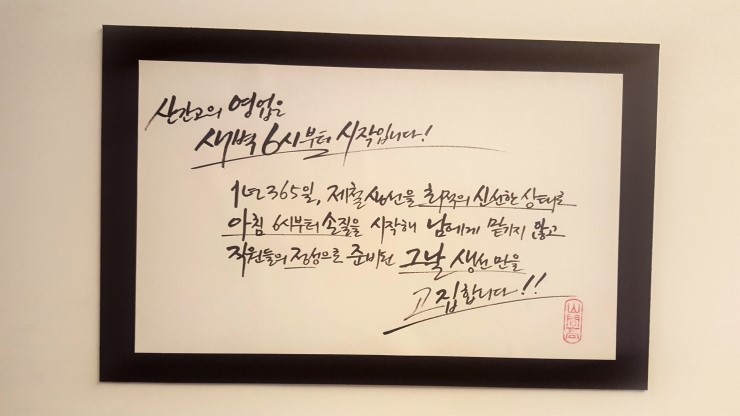 산간고의 영업은
새벽 6시부터 시작입니다!
1년 365일, 제철생선을 최적의 신선한 상태로
아침 6시부터 손질을 시작해 남에게 맡기지 않고
직원들의 정성으로 준비된 그날 생선만을
고집합니다!!